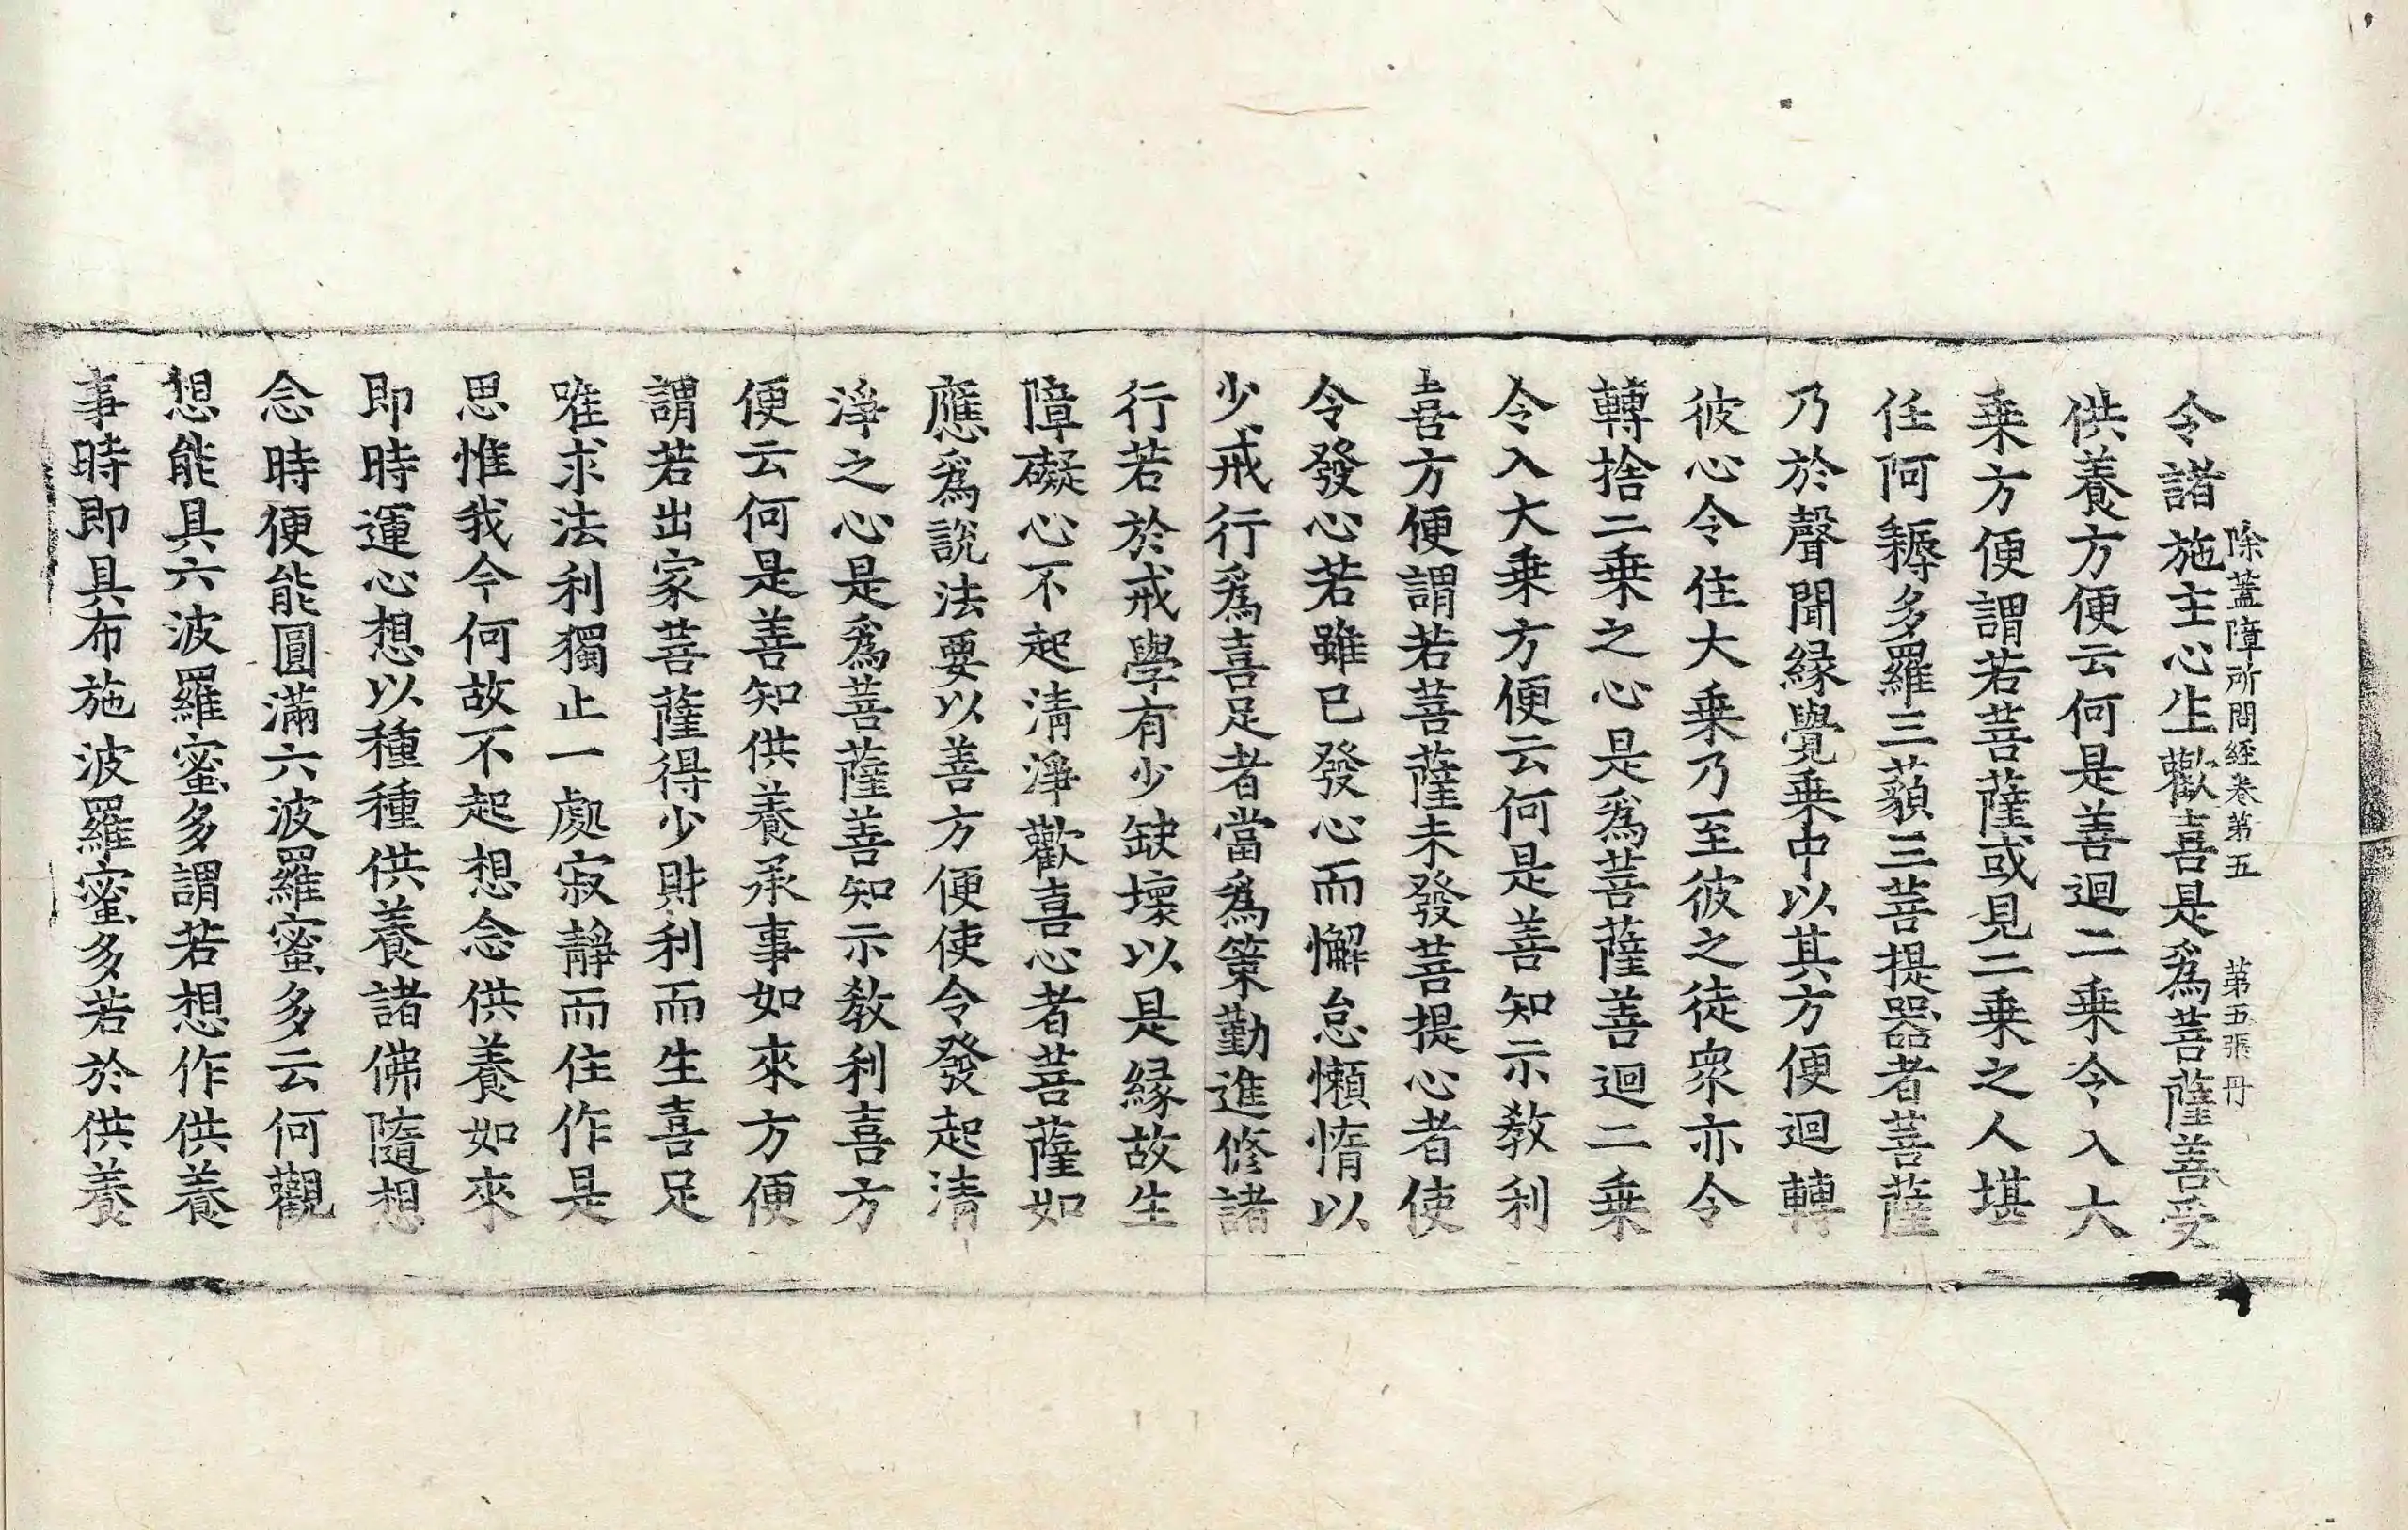 除蓋障所問經卷第五　第五張　丹
令諸施主心生歡喜是爲菩薩善受
供養方便云何是善迴二乗令入大
乗方便謂若菩薩或見二乗之人堪
任阿耨多羅三藐三菩提器者菩薩
乃於聲聞緣覺乗中以其方便迴轉
彼心令住大乗乃至彼之徒衆亦令
轉捨二乗之心是爲菩薩善迴二乗
令入大乗方便云何是善知示教利
喜方便謂若菩薩未發菩提心者使
令發心若雖已發心而懈怠懶惰以
少戒行爲喜足者當爲策勤進修諸
行若於戒學有少缺壞以是緣故生
障礙心不起清淨歡喜心者菩薩如
應爲說法要以善方便使令發起清
淨之心是爲菩薩善知示教利喜方
便云何是善知供養承事如來方便
謂若出家菩薩得少財利而生喜足
唯求法利獨止一處寂靜而住作是
思惟我今何故不起想念供養如來
即時運心想以種種供養諸佛隨想
念時便能圓滿六波羅蜜多云何觀
想能具六波羅蜜多謂若想作供養
事時即具布施波羅蜜多若於供養